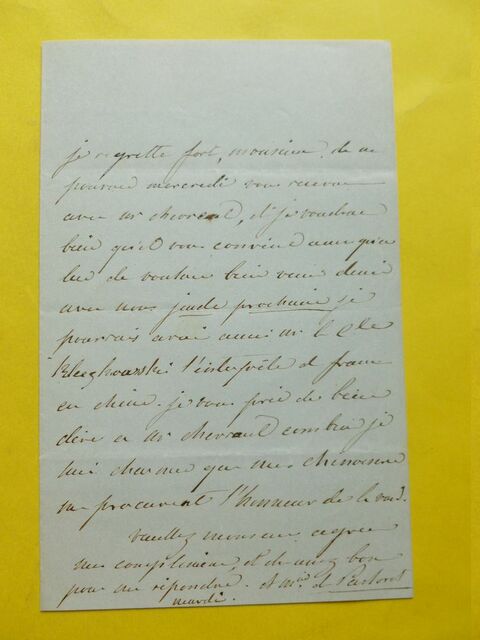 je regrette fort, monsieur, de ne
pouvoir mercredi vous recevoir
avec mr chevreul, et je voudrais
bien qu'il vous convint ainsi qu'a
lui de vouloir bien venir diner
avec nous jeudi prochain je
pourrais avoir aussi mr le Cte
Kleczkowski l'interprète de france
en chine. je vous prie de bien
dire a mr chevreul combien je
suis charmé que mes chinoiseries
me procurent l'honneur de le voir.
veuillez monsieur agréer
mes compliments et
pour me répondre. de Pastoret
mardi.